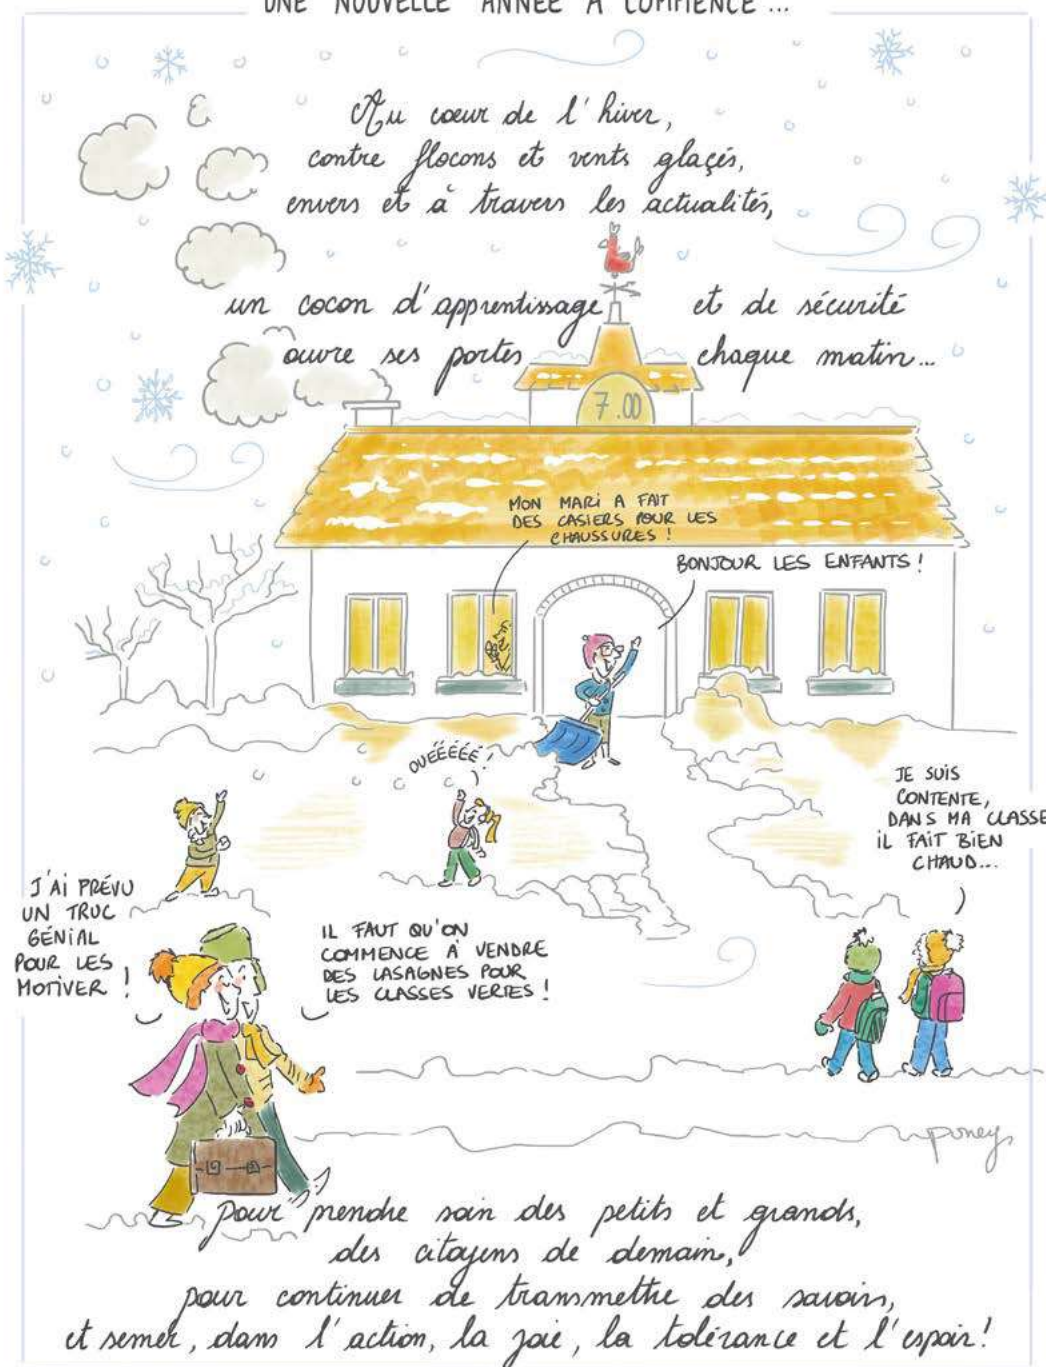 UNE NOUVELLE ANNÉE A COMMENCÉ...
Au cœur de l'hiver,
contre flocons et vents glaçés,
envers et à travers les actualités,
un cocon d'apprentissage et de sécurité
ouvre ses portes chaque matin...
7.00
MON MARI A FAIT
DES CASIERS POUR LES
CHAUSSURES !
BONJOUR LES ENFANTS !
OUÉÉÉÉÉ !
JE SUIS
CONTENTE,
DANS MA CLASSE
IL FAIT BIEN
CHAUD...
J'AI PRÉVU
UN TRUC
GÉNIAL
POUR LES
MOTIVER !
IL FAUT QU'ON
COMMENCE À VENDRE
DES LASAGNES POUR
LES CLASSES VERTES !
poney
pour prendre soin des petits et grands,
des citoyens de demain,
pour continuer de transmettre des savoirs,
et semer, dans l'action, la joie, la tolérance et l'espoir!